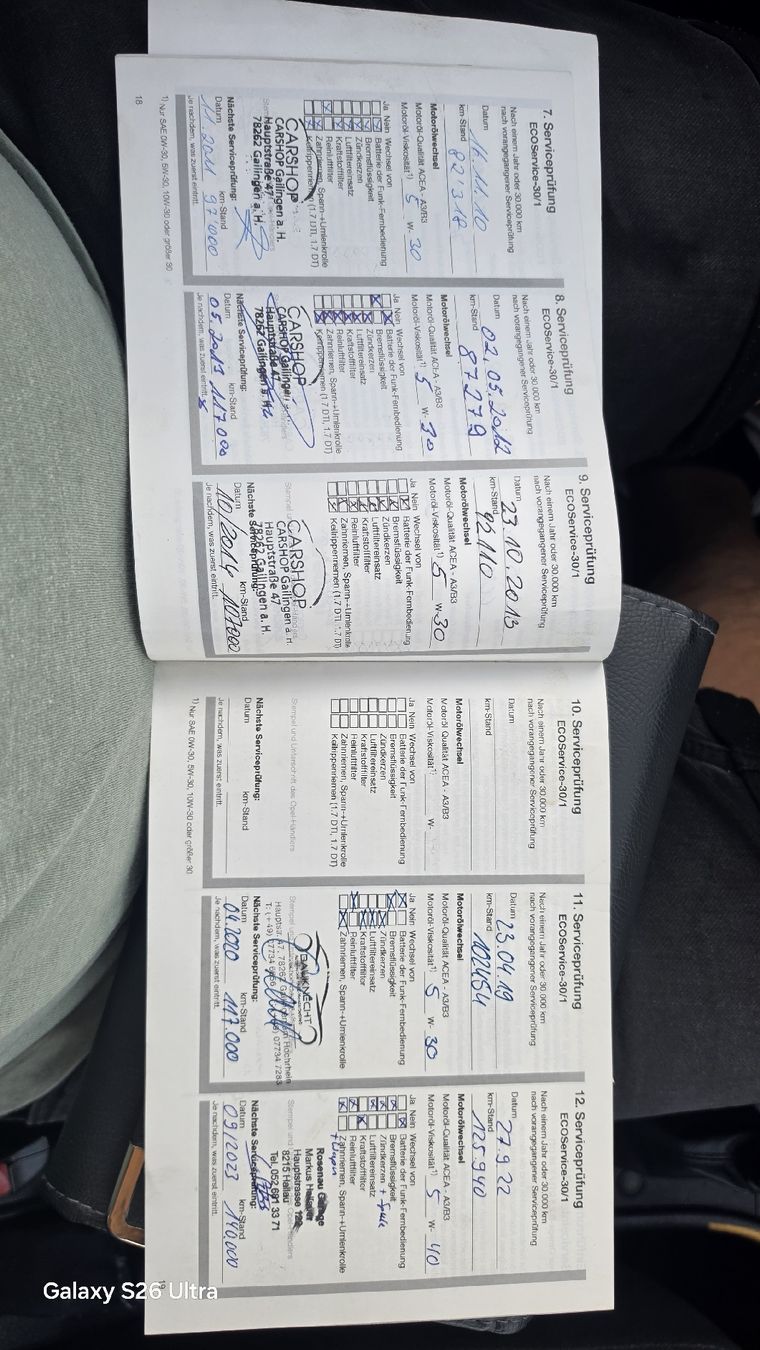 7. Serviceprüfung
ECOService-30/1
Nach einem Jahr oder 30.000 km
nach vorangegangener Serviceprüfung
Datum 16.11.10
km-Stand 82'318
Motorölwechsel
Motoröl-Qualität ACEA - A3/B3
Motoröl-Viskosität¹⁾ 5 W- 30
Ja Nein Wechsel von
Batterie der Funk-Fernbedienung
Bremsflüssigkeit
Zündkerzen
Luftfiltereinsatz
Kraftstofffilter
Reinluftfilter
Zahnriemen, Spann-+Umlenkrolle
Keilrippenriemen (1.7 DTI, 1.7 DT)
CARSHOP
CARSHOP Gailingen a. H.
Hauptstraße 47
78262 Gailingen a. H.
Nächste Serviceprüfung:
Datum km-Stand
11.2011 97'000
Je nachdem, was zuerst eintritt.
1) Nur SAE 0W-30, 5W-30, 10W-30 oder größer 30
18
8. Serviceprüfung
ECOService-30/1
Nach einem Jahr oder 30.000 km
nach vorangegangener Serviceprüfung
Datum 02.05.2012
km-Stand 87279
Motorölwechsel
Motoröl-Qualität ACEA - A3/B3
Motoröl-Viskosität¹⁾ 5 W- 30
Ja Nein Wechsel von
Batterie der Funk-Fernbedienung
Bremsflüssigkeit
Zündkerzen
Luftfiltereinsatz
Kraftstofffilter
Reinluftfilter
Zahnriemen, Spann-+Umlenkrolle
Keilrippenriemen (1.7 DTI, 1.7 DT)
CARSHOP
CARSHOP Gailingen
Hauptstraße 47
78262 Gailingen a. H.
Nächste Serviceprüfung:
Datum km-Stand
05.2013 117000
Je nachdem, was zuerst eintritt.
9. Serviceprüfung
ECOService-30/1
Nach einem Jahr oder 30.000 km
nach vorangegangener Serviceprüfung
Datum 23.10.2013
km-Stand 92110
Motorölwechsel
Motoröl-Qualität ACEA - A3/B3
Motoröl-Viskosität¹⁾ 5 W- 30
Ja Nein Wechsel von
Batterie der Funk-Fernbedienung
Bremsflüssigkeit
Zündkerzen
Luftfiltereinsatz
Kraftstofffilter
Reinluftfilter
Zahnriemen, Spann-+Umlenkrolle
Keilrippenriemen (1.7 DTI, 1.7 DT)
CARSHOP
CARSHOP Gailingen a. H.
Hauptstraße 47
78262 Gailingen a. H.
Nächste Serviceprüfung:
Datum km-Stand
10/2014 107000
Je nachdem, was zuerst eintritt.
10. Serviceprüfung
ECOService-30/1
Nach einem Jahr oder 30.000 km
nach vorangegangener Serviceprüfung
Datum
km-Stand
Motorölwechsel
Motoröl Qualität ACEA - A3/B3
Motoröl-Viskosität¹⁾: W-
Ja Nein Wechsel von
Batterie der Funk-Fernbedienung
Bremsflüssigkeit
Zündkerzen
Luftfiltereinsatz
Kraftstofffilter
Reinluftfilter
Zahnriemen, Spann-+Umlenkrolle
Keilrippenriemen (1.7 DTI, 1.7 DT)
Stempel und Unterschrift des Opel-Händlers
Nächste Serviceprüfung:
Datum km-Stand
Je nachdem, was zuerst eintritt.
1) Nur SAE 0W-30, 5W-30, 10W-30 oder größer 30
11. Serviceprüfung
ECOService-30/1
Nach einem Jahr oder 30.000 km
nach vorangegangener Serviceprüfung
Datum 23.04.19
km-Stand 102454
Motorölwechsel
Motoröl-Qualität ACEA - A3/B3
Motoröl-Viskosität¹⁾ 5 W- 30
Ja Nein Wechsel von
Batterie der Funk-Fernbedienung
Bremsflüssigkeit
Zündkerzen
Luftfiltereinsatz
Kraftstofffilter
Reinluftfilter
Zahnriemen, Spann-+Umlenkrolle
BAUKNECHT
Hauptstr. 47, 78262 Hochrhein
07734 7283
Nächste Serviceprüfung:
Datum km-Stand
04.2020 117.000
Je nachdem, was zuerst eintritt.
12. Serviceprüfung
ECOService-30/1
Nach einem Jahr oder 30.000 km
nach vorangegangener Serviceprüfung
Datum 27.9.22
km-Stand 125940
Motorölwechsel
Motoröl-Qualität ACEA - A3/B3
Motoröl-Viskosität¹⁾ 5 W- 40
Ja Nein Wechsel von
Batterie der Funk-Fernbedienung
Bremsflüssigkeit
Zündkerzen + Spule
Luftfiltereinsatz
Kraftstofffilter
Reinluftfilter
Zahnriemen, Spann-+Umlenkrolle
Rosenau Garage
Markus
Hauptstrasse
8215 Hallau
Tel. 052 681 33 71
Nächste Serviceprüfung:
Datum km-Stand
09/2023 140.000
Je nachdem, was zuerst eintritt.
19
Galaxy S26 Ultra